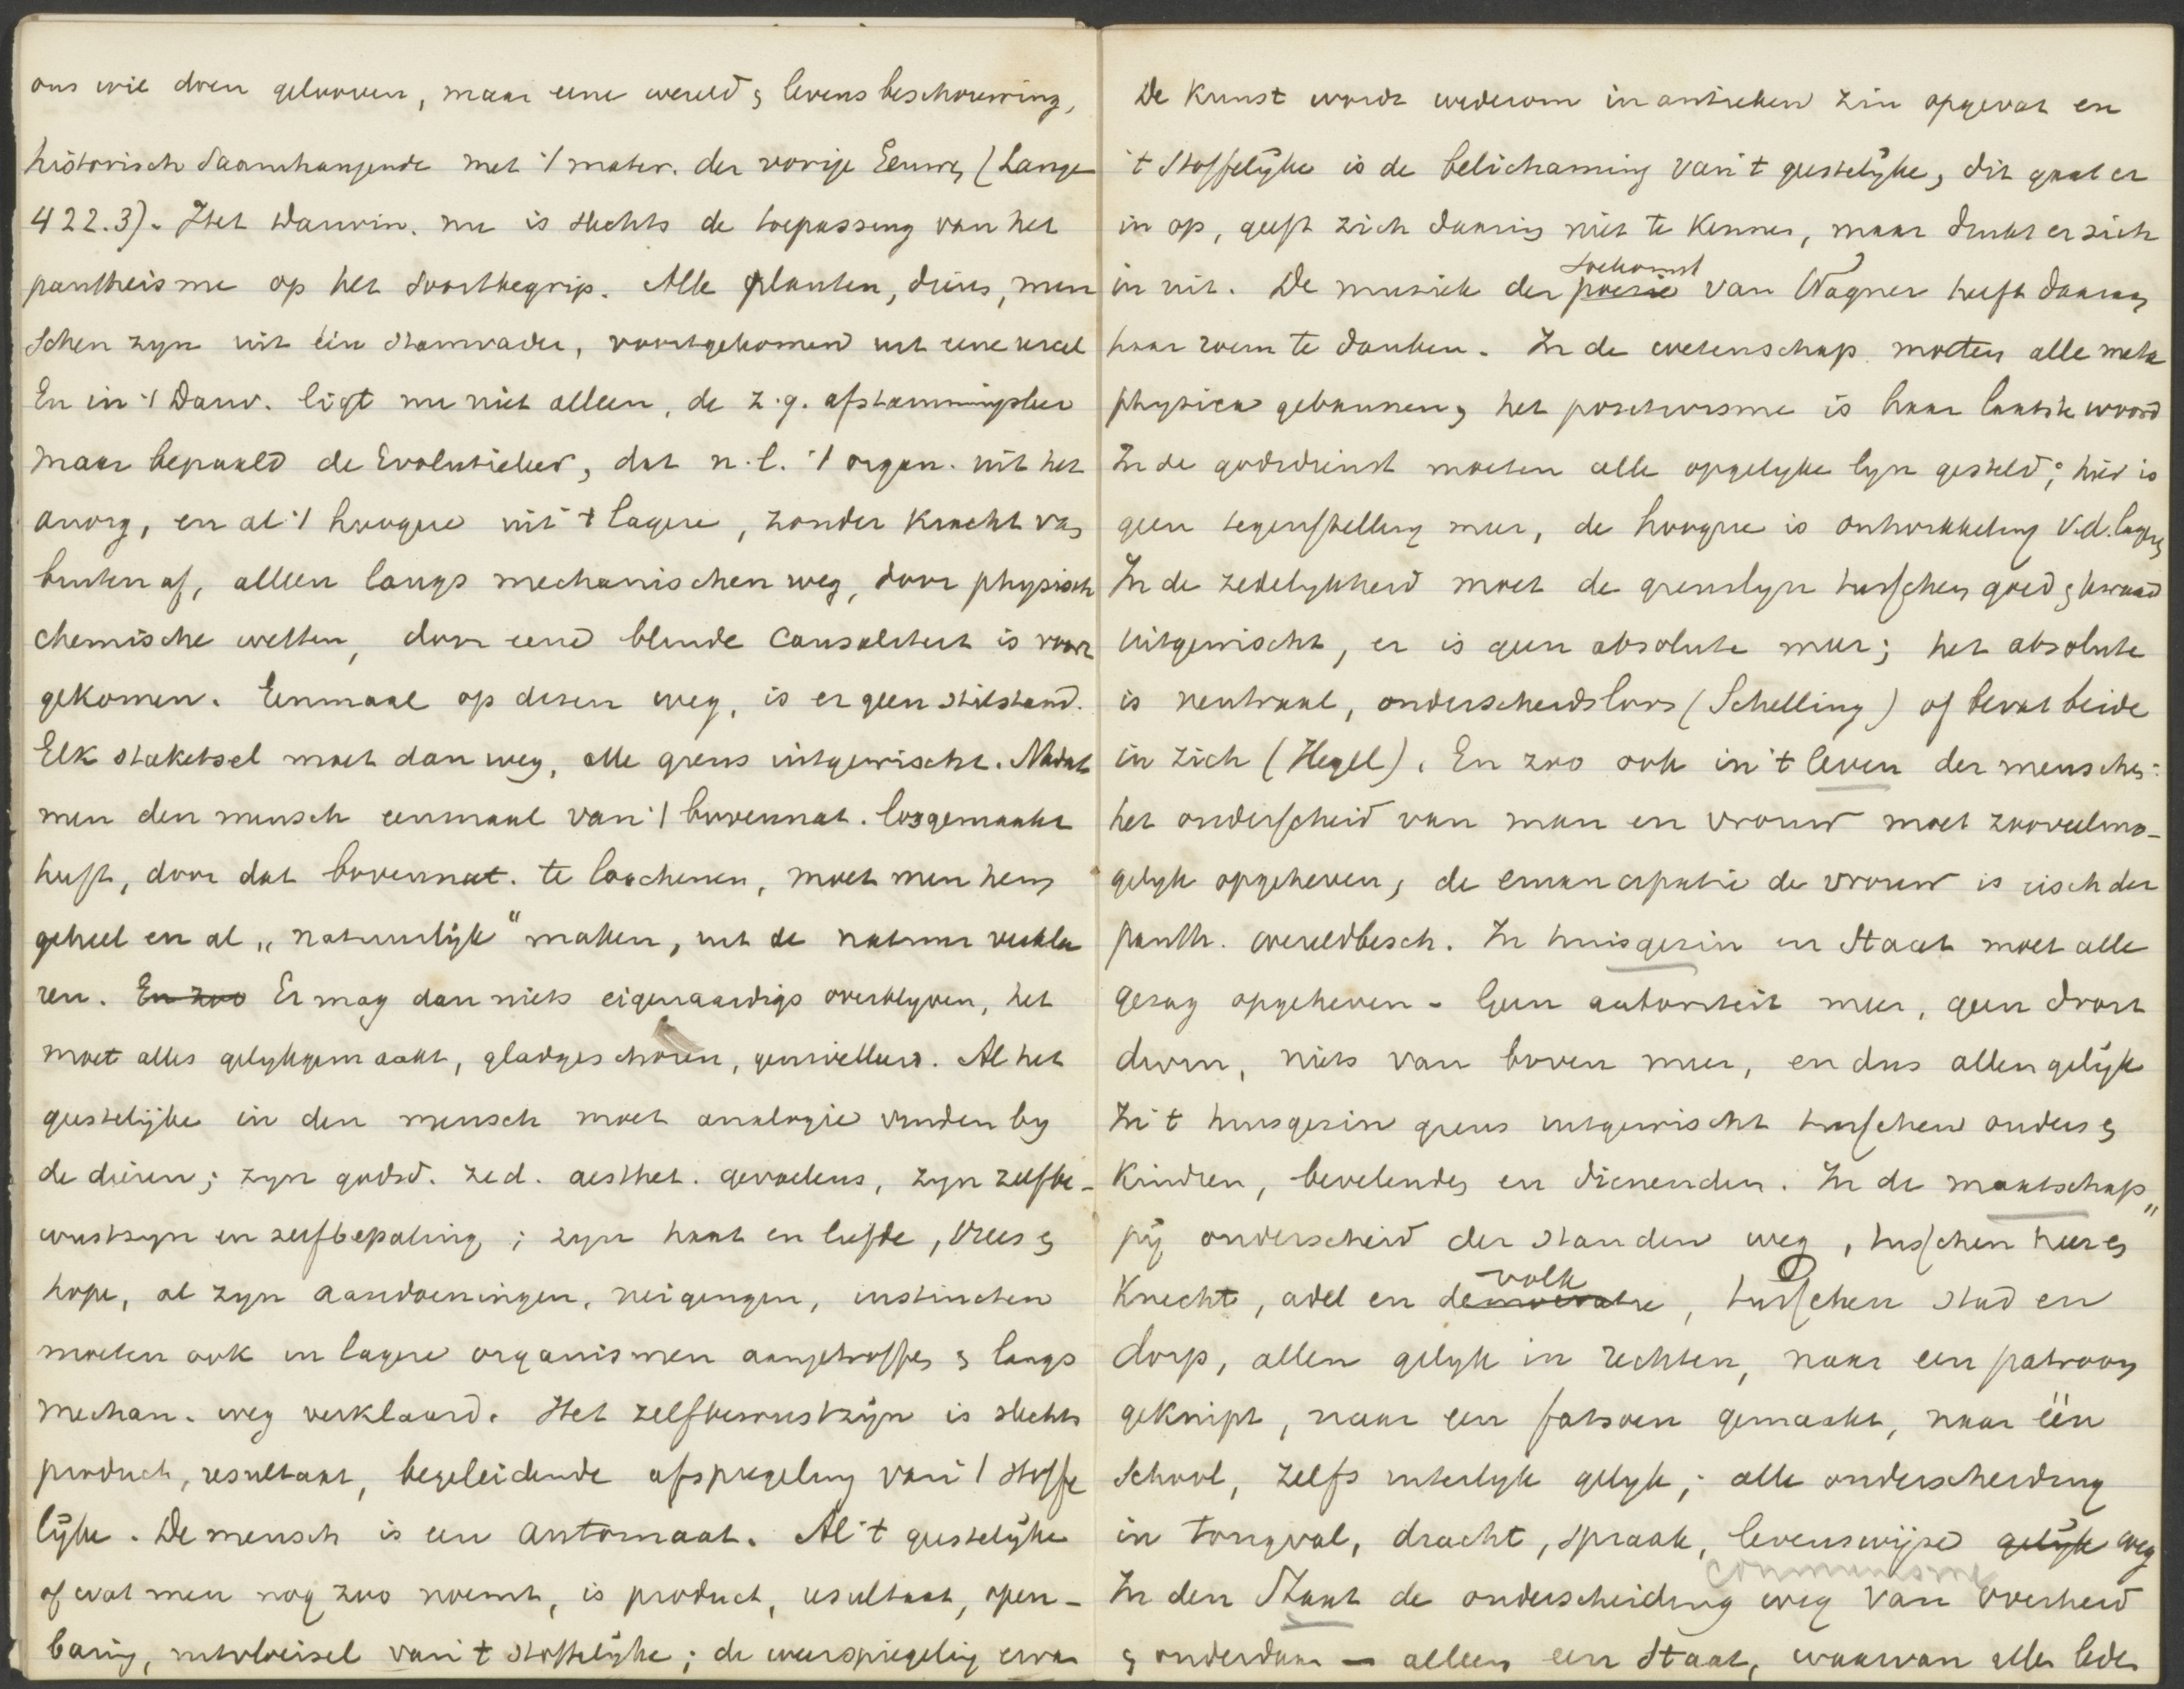 ons wil doen gelooven, maar eene wereld & levensbeschouwing,
historisch saamhangende met 't mater. der vorige Eeuw, (Lange
422.3). Het Darwin. nu is slechts de toepassing van het
pantheisme op het soortbegrip. Alle planten, diers, men
schen zyn uit één stamvader, voortgekomen uit eene urcel
En in 't Darw. ligt nu niet alleen, de z.g. afstammingsleer
maar bepaald de Evolutieleer, dat n.l. 't organ. uit het
anorg, en al 't hoogere uit 't lagere, zonder kracht van
buiten af, alleen langs mechanischen weg, door physisch
chemische wetten, door eene blinde causaliteit is voort
gekomen. Eenmaal op dezen weg, is er geen stilstand.
Elk staketsel moet dan weg, alle grens uitgewischt. Nadat
men den mensch eenmaal van 't bovennat. losgemaakt
heeft, door dat bovennat. te loochenen, moet men hem
geheel en al „natuurlijk" maken, uit de natuur verkla
ren. En zoo Er mag dan niets eigenaardigs overblyven, het
moet alles gelykgemaakt, gladgeschoren, genivelleerd. Al het
geestelijke in den mensch moet analogie vinden by
de dieren; zyn godsd. zed. aesthet. gevoelens, zyn zelfbe-
wustzyn en zelfbepaling; zyn haat en liefde, vrees &
hope, al zyn aandoeningen, neigingen, instincten
moeten ook in lagere organismen aangetroffen & langs
mechan. weg verklaard. Het zelfbewustzijn is slechts
product, resultaat, begeleidende afspiegeling van 't stoffe
lijke. De mensch is een automaat. Al 't geestelijke
of wat men nog zoo noemt, is product, resultaat, open-
baring, uitvloeisel van 't stoffelijke; de weerspiegeling ervan
De Kunst wordt wederom in antieken zin opgevat en
't stoffelijke is de belichaming van 't geestelijke, dit gaat er
in op, geeft zich daarin niet te kennen, maar drukt er zich
in uit. De muziek der poezie toekomst van Wagner heeft daaraan
haar roem te danken. In de wetenschap moeten alle meta
physica gebannen, het positivisme is haar laatste woord
In de godsdienst moeten alle op gelyke lyn gesteld; hier is
geen tegenstelling meer, de hoogere is ontwikkeling v.d. lagere
In de zedelykheid moet de grenslyn tusschen goed & kwaad
uitgewischt, er is geen absolute meer; het absolute
is neutraal, onderscheidsloos (Schelling) of bevat beide
in zich (Hegel). En zoo ook in 't leven der menschen:
het onderscheid van man en vrouw moet zooveelmo-
gelyk opgeheven, de emancipatie de vrouw is eisch der
panth. wereldbesch. In huisgezin en Staat moet alle
gezag opgeheven - Geen autoriteit meer, geen droit
divin, niets van boven meer, en dus allen gelijk
In 't huisgezin grens uitgewischt tusschen ouders &
kindren, bevelenden en dienenden. In de maatschap„
pij onderscheid der standen weg, tusschen heer &
Knecht, adel en democratie volk, tusschen stad en
dorp, allen gelyk in rechten, naar een patroon
geknipt, naar een fatsoen gemaakt, naar één
school, zelfs uiterlyk gelyk; alle onderscheiding
in tongval, dracht, spraak, levenswijze gelijk weg
communisme
In den Staat de onderscheiding weg van overheid
& onderdaan — alleen een Staat, waarvan alle leden